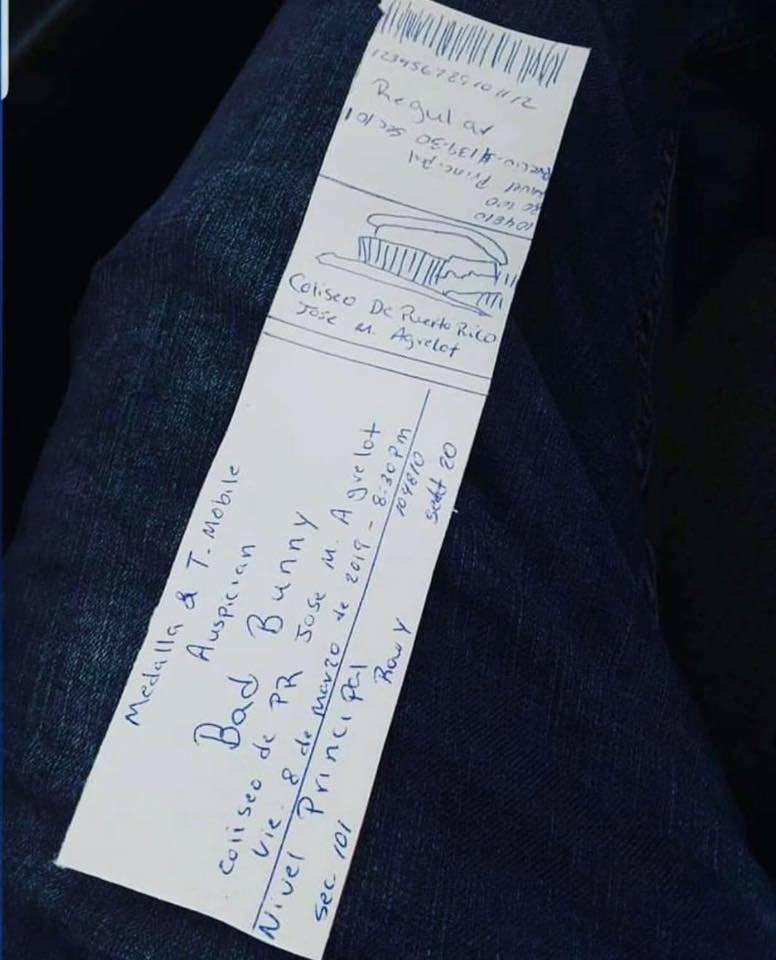 12345678910112
Regular
Precio-$139.50 Sec 101
Nivel Principal
104810
Coliseo De Puerto Rico
Jose M. Agrelot
Medalla & T. Mobile
Auspician
Bad Bunny
Coliseo de PR Jose M. Agrelot
Vie. 8 de Marzo de 2019 - 8:30 PM
Nivel Principal
104810
Sec. 101
Row Y
seat 20